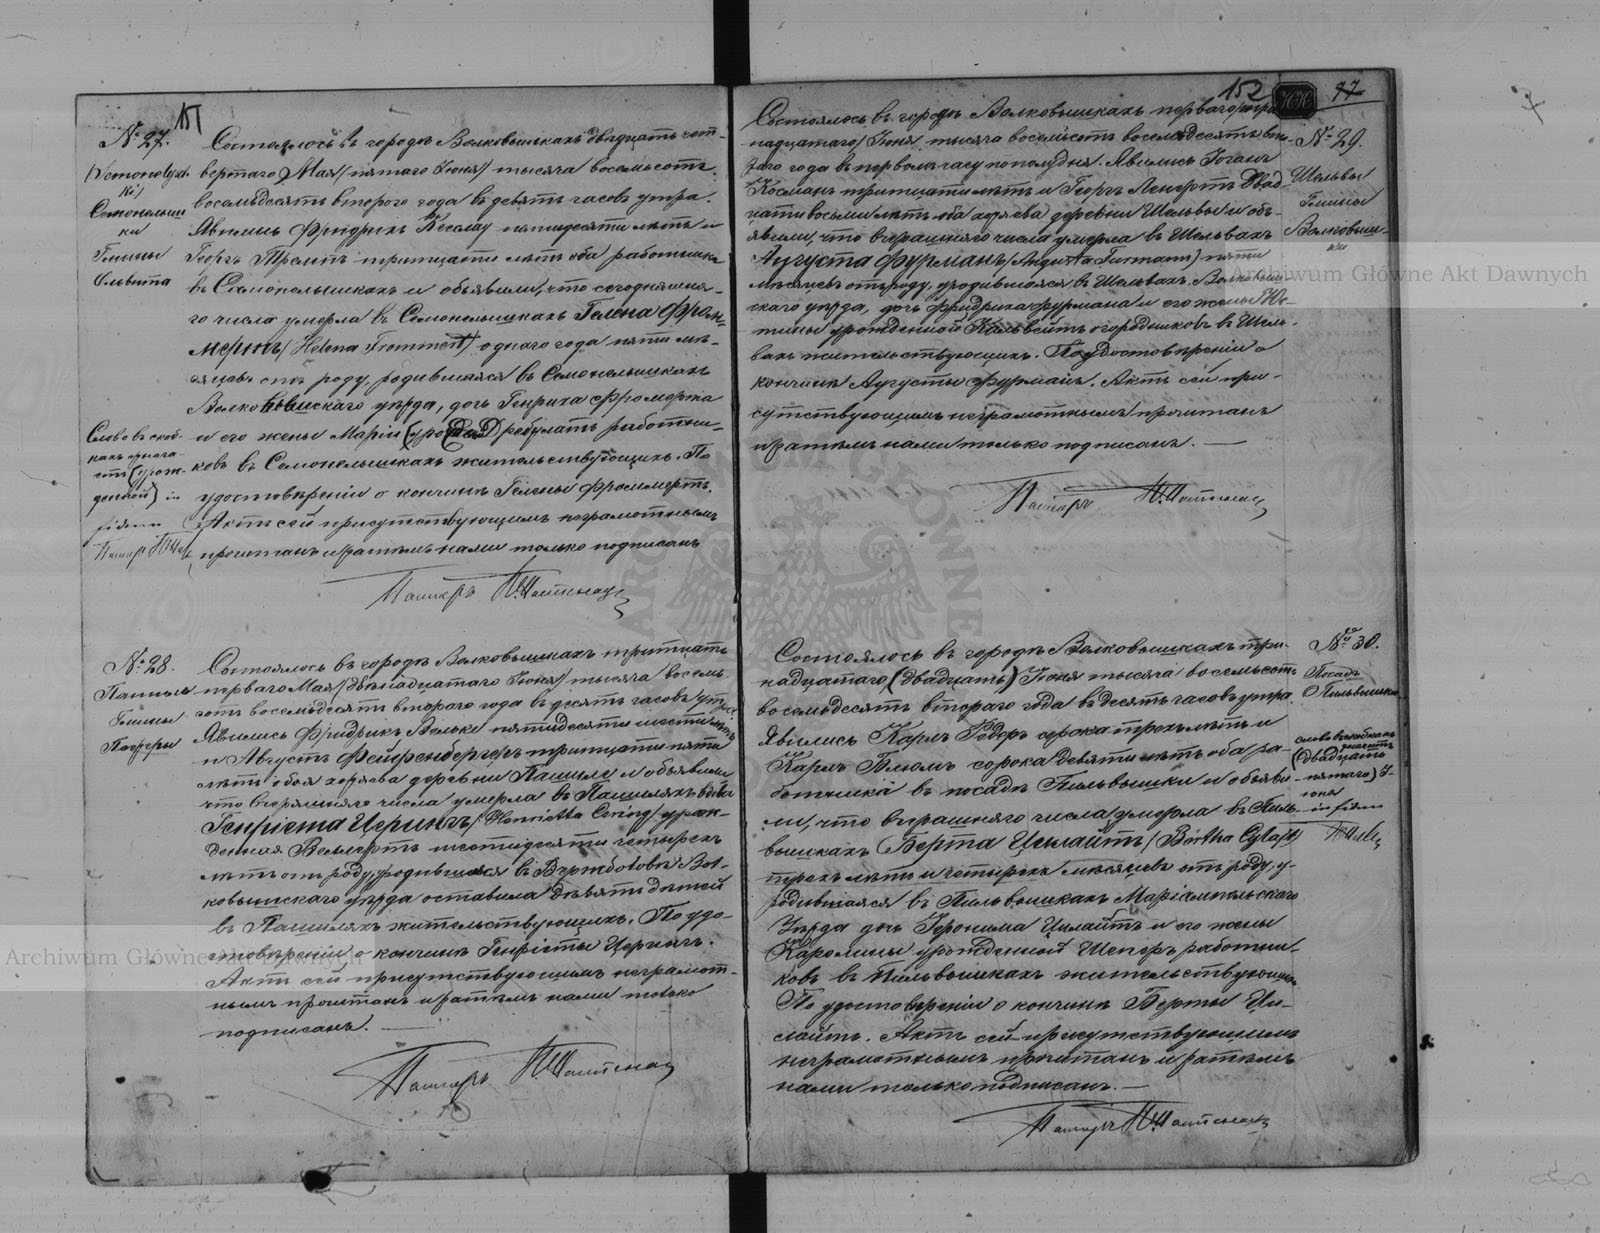 151
№ 27.
(Semonelysz-
ki)
Семонелыш
ки
Гмины
Ольвита
Состоялось въ городѣ Волковышкахъ двадцать чет-
вертаго Мая/пятаго Іюня/ тысяча восемьсотъ
восемьдесятъ втораго года въ девять часовъ утра.
Явились Фридрихъ Кесслау пятидесяти лѣтъ и
Георгъ тридцати лѣтъ оба работники
въ Семонелышкахъ и объявили, что сегодняшня-
го числа умерла въ Семонелышкахъ Гелена Фром-
мертъ/Helena Frommert/ одного года пяти мѣ-
сяцевъ отъ роду, родившаяся въ Семонелышкахъ
Волковышскаго уѣзда, дочь Генриха Фроммерта
и его жены Маріи работни-
ковъ въ Семонелышкахъ жительствующихъ. По
удостовѣреніи о кончинѣ Гелены Фроммертъ.
Актъ сей присутствующимъ неграмотнымъ
прочитанъ и затѣмъ нами только подписанъ
Слово въ скоб-
кахъ
(урож-
денной) in
fidem
Пасторъ
Пасторъ
№ 28.
Пашиле
Гмины
Состоялось въ городѣ Волковышкахъ тритцать
перваго Мая/двѣнадцатаго Іюня/ тысяча восемь-
сотъ восемьдесятъ втораго года въ десять часовъ утра
Явились Фридрихъ Вельке пятидесяти шести лѣтъ
и Августъ Фейерсенбергеръ тритцати пяти
лѣтъ оба хозяева деревни Пашиле и объявили
что вчерашняго числа умерла въ Пашиляхъ вдова
Генріета Церингъ/Henrietta Cering/ урож-
денная Веллертъ шестидесяти четырехъ
лѣтъ отъ роду, родившаяся въ Вол-
ковышскаго уѣзда оставила девять дѣтей
въ Пашиляхъ жительствующихъ. По удо-
стовѣреніи о кончинѣ Генріеты Церингъ.
Актъ сей присутствующимъ неграмот-
нымъ прочитанъ и затѣмъ нами только
подписанъ.
Пасторъ
152
77
№ 29.
Шельвы
Гмины
Волковыш-
ки
Состоялось въ городѣ Волковышкахъ перваго/три-
надцатаго/Іюня тысяча восемьсотъ восемьдесятъ вто-
раго года въ первомъ часу пополудня. Явились Іоганъ
Косманъ тритцати лѣтъ и Георгъ Ленертъ двад-
цати восьми лѣтъ оба хозяева деревни Шельвы и объ-
явили, что вчерашняго числа умерла въ Шельвахъ
Аугуста Фурманъ/Augusta Furmann/ пяти
мѣсяцевъ отъ роду, родившаяся въ Шельвахъ Волковыш-
скаго уѣзда, дочь Фридриха Фурмана и его жены Юс-
тины урожденной огородниковъ въ Шель-
вахъ жительствующихъ. По удостовѣреніи о
кончинѣ Аугусты Фурманъ. Актъ сей при-
сутствующимъ неграмотнымъ прочитанъ
и затѣмъ нами только подписанъ.
Пасторъ
№ 30.
Посадъ
Пильвишки
слова въ скобкахъ
значитъ
(двадцать
пятаго) І-
юня
in fidem
Состоялось въ городѣ Волковышкахъ три-
надцатаго (двадцать) Іюня тысяча восемьсотъ
восемьдесятъ втораго года въ десять часовъ утра.
Явились Карлъ Гедеръ сорока трехъ лѣтъ и
Карлъ Блюмъ сорока девяти лѣтъ оба ра-
ботники въ посадѣ Пильвышки и объяви-
ли, что вчерашняго числа умерла въ Пиль-
вышкахъ Берта Цилайтъ/Bertha Cylajt/
трехъ лѣтъ и четырехъ мѣсяцевъ отъ роду, у-
родившаяся въ Пильвышкахъ Маріампольскаго
Уѣзда дочь Іеронима Цилайтъ и его жены
Каролины урожденной Шеперъ работни-
ковъ въ Пильвышкахъ жительствующихъ
По удостовѣреніи о кончинѣ Берты Ци-
лайтъ. Актъ сей присутствующимъ
неграмотнымъ прочитанъ и затѣмъ
нами только подписанъ.
Пасторъ
Archiwum Główne Akt Dawnych
Archiwum Główne Akt Dawnych